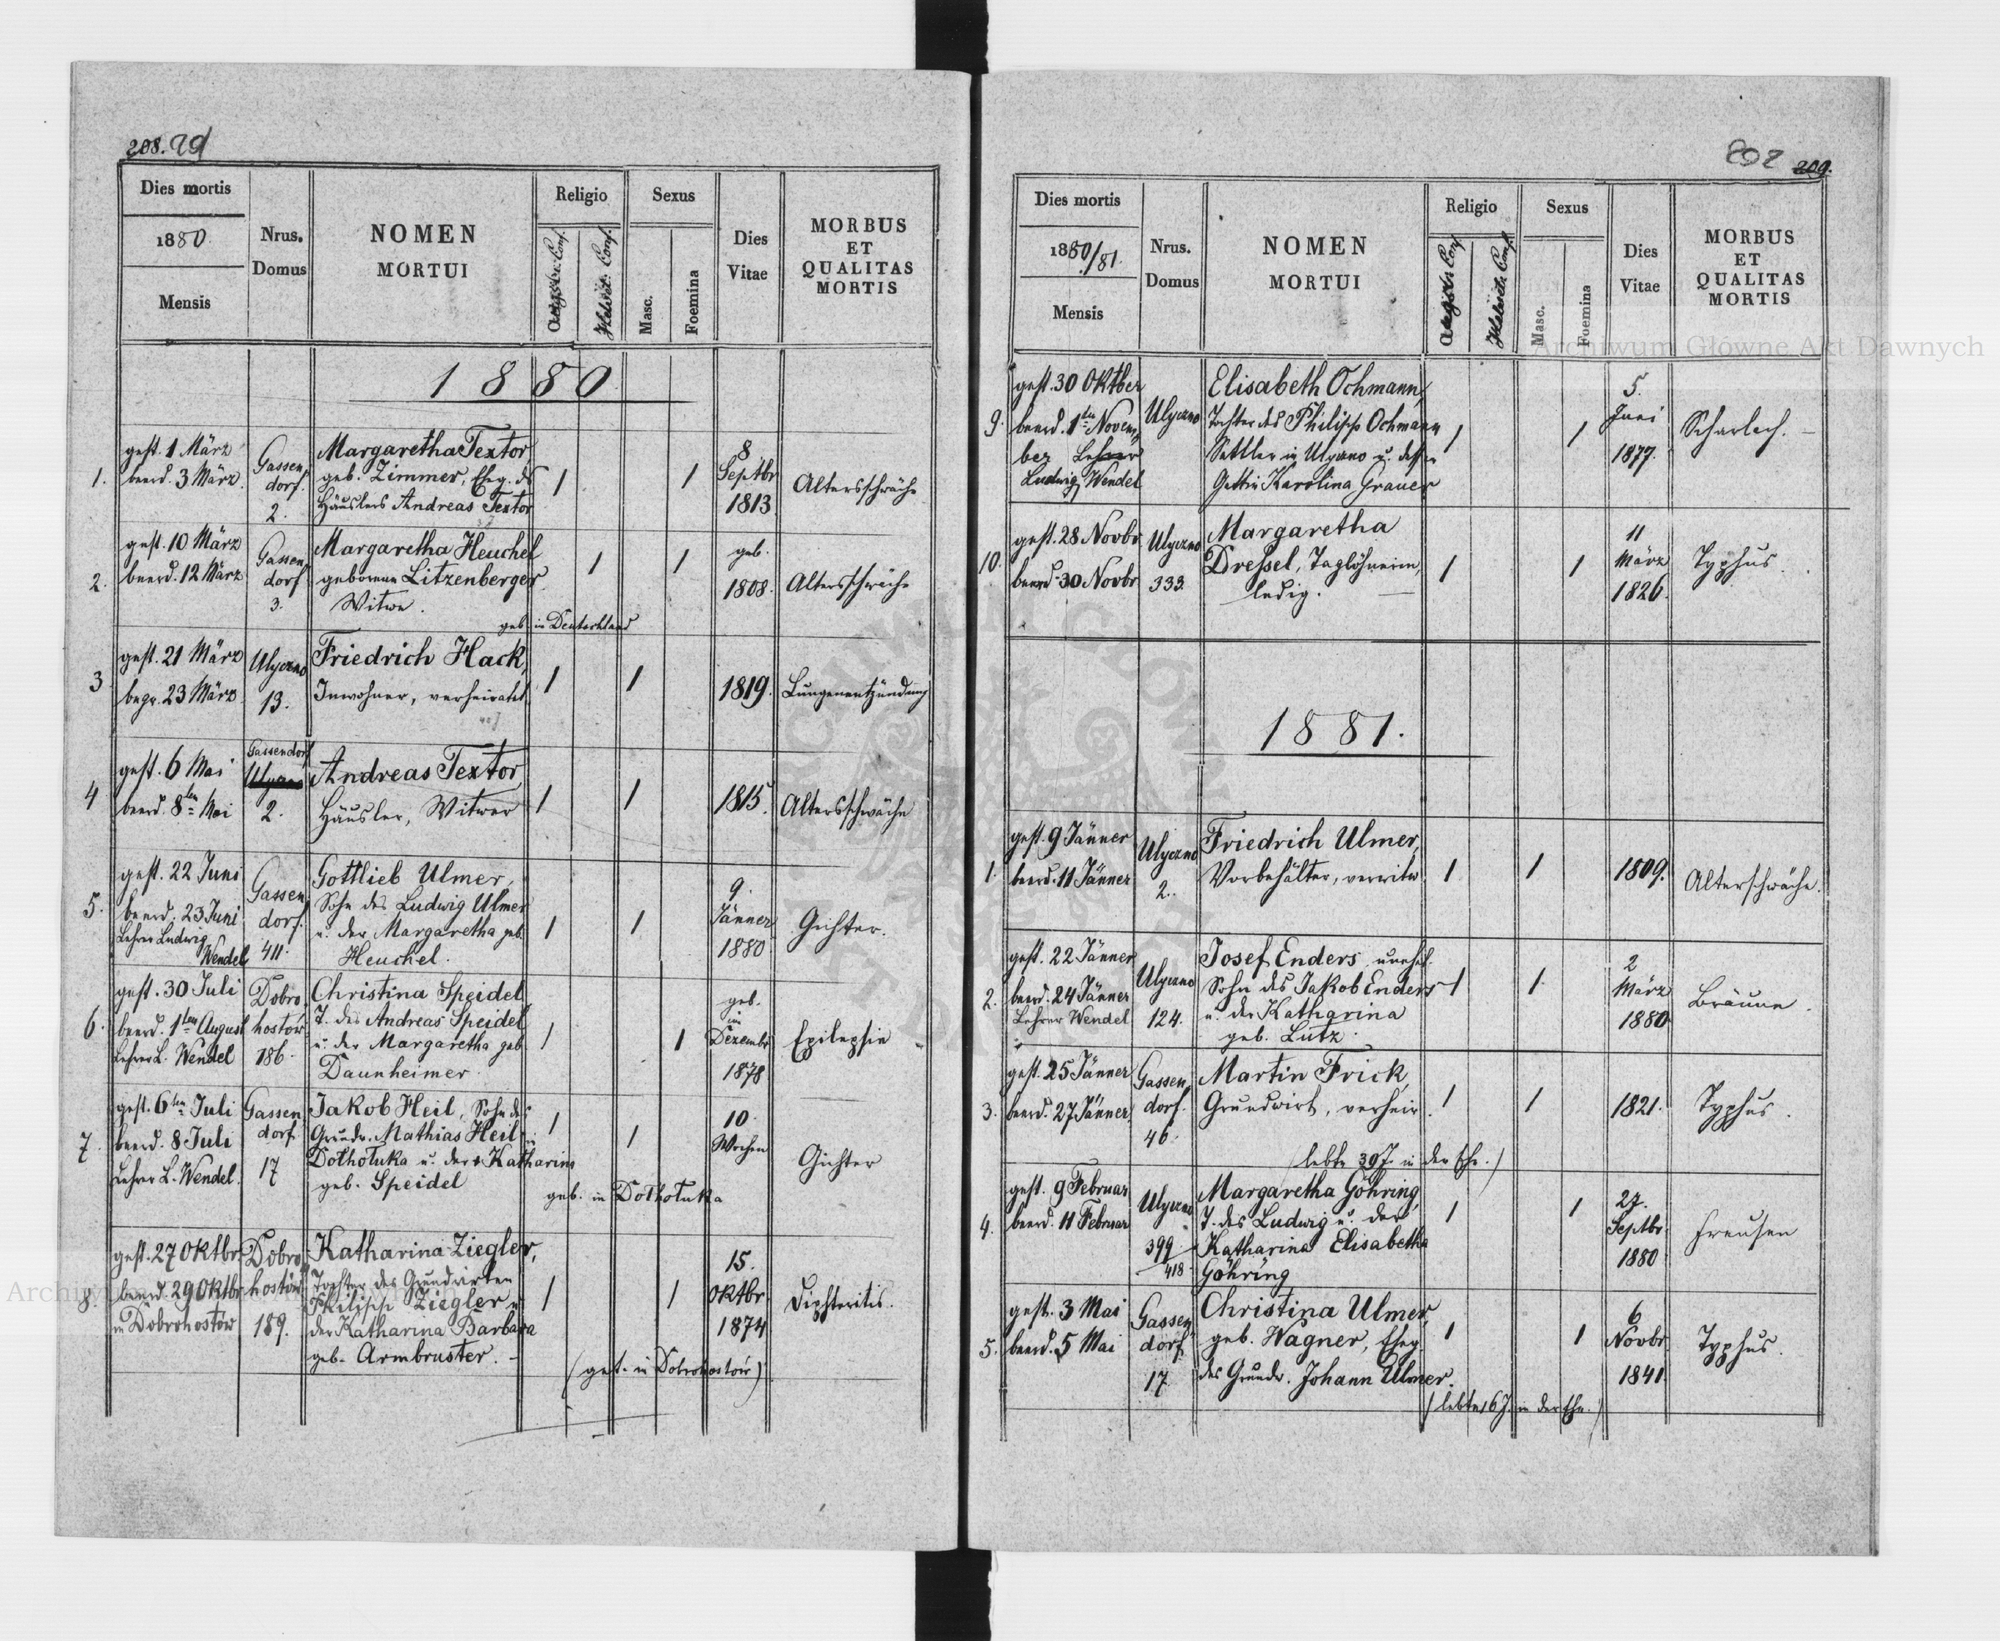 208. 201
Dies mortis
1880.
Mensis
Nrus.
Domus
NOMEN
MORTUI
Religio
Augsbr. Conf.
Helvet. Conf.
Sexus
Masc.
Foemina
Dies
Vitae
MORBUS
ET
QUALITAS
MORTIS
1880.
1. gest. 1 März
beerd. 3 März.
Gassen
dorf.
2.
Margaretha Textor
geb. Zimmer, Eheg. ds
Häuslers Andreas Textor
1
1
8
Septbr
1813
Altersschwäche
2. gest. 10 März
beerd. 12 März
Gassen
dorf
3.
Margaretha Heuchel
geborene Litzenberger
Witwe.
geb. in Deutschland
1
1
geb.
1808.
Altersschwäche
3 gest. 21 März
begr. 23 März.
Ulyczno
13.
Friedrich Hack,
Inwohner, verheiratet
1
1
1819.
Lungenentzündung
4 gest. 6 Mai
beerd. 8ten Mai
Gassendorf
Ulyczno
2.
Andreas Textor
Häusler, Witwer
1
1
1815.
Altersschwäche
5. gest. 22 Juni
beerd. 23 Juni
Lehrer Ludwig
Wendel
Gassen
dorf.
411.
Gottlieb Ulmer,
Sohn des Ludwig Ulmer
u. der Margaretha geb.
Heuchel.
1
1
9.
Jänner
1880
Gichter.
6. gest. 30 Juli
beerd. 1ten August
Lehrer L. Wendel
Dobro
hostów
186.
Christina Speidel
T. des Andreas Speidel
u. der Margaretha geb.
Daunheimer.
1
1
geb.
im
Dezembr
1878
Epilepsie
7. gest. 6ten Juli
beerd. 8 Juli
Lehrer L. Wendel.
Gassen
dorf
17
Jakob Heil, Sohn des
Grundw. Mathias Heil in
Dothotuka u. der Katharina
geb. Speidel
geb. in Dothotuka
1
1
10.
Wochen
Gichter
8. gest. 27 Oktbr
beerd. 29 Oktbr
in Dobrohostów
Dobro
hostów
189.
Katharina Ziegler,
Tochter des Grundwirten
Philipp Ziegler u.
der Katharina Barbara
geb. Armbruster.
(get. in Dobrohostów)
1
1
15.
Oktbr
1874
Diphteritis.
202 209.
Dies mortis
1880/81.
Mensis
Nrus.
Domus
NOMEN
MORTUI
Religio
Augsbr. Conf.
Helvet. Conf.
Sexus
Masc.
Foemina
Dies
Vitae
MORBUS
ET
QUALITAS
MORTIS
9. gest. 30 Oktber
beerd. 1ten Novem
ber Lehrer
Ludwig Wendel
Ulyczno
Elisabeth Ochmann,
Tochter des Philipp Ochmann
Settler in Ulyczno u. dessen
Gattin Karolina Grauer
1
1
5.
Juni
1877.
Scharlach.
10. gest. 28 Novbr.
beerd. 30 Novbr
Ulyczno
333.
Margaretha
Dressel, Taglöhnerin,
ledig.
1
1
11
März
1826.
Typhus.
1881.
1. gest. 9 Jänner
beerd. 11 Jänner
Ulyczno
2.
Friedrich Ulmer,
Vorbehälter, verwitw.
1
1
1809.
Altersschwäche.
2. gest. 22 Jänner
beerd. 24 Jänner
Lehrer Wendel
Ulyczno
124.
Josef Enders, unehel.
Sohn des Jakob Enders
u. der Katharina
geb. Lutz.
1
1.
2
März
1880.
Bräune.
3. gest. 25 Jänner
beerd. 27 Jänner.
Gassen
dorf.
46.
Martin Frick,
Grundwirt, verheir.
(lebte 39 J. in der Ehe.)
1
1
1821.
Typhus.
4. gest. 9 Februar
beerd. 11 Februar
Ulyczno
399
418
Margaretha Göhring,
T. des Ludwig u. der
Katharina Elisabetha
Göhring
1
1
27.
Septbr.
1880
Freusen
5. gest. 3 Mai
beerd. 5 Mai
Gassen
dorf
17
Christina Ulmer,
geb. Wagner, Eheg.
des Grundw. Johann Ulmer.
(lebte 16 J. in der Ehe.)
1
1
6
Novbr.
1841
Typhus.
Archiwum Główne Akt Dawnych